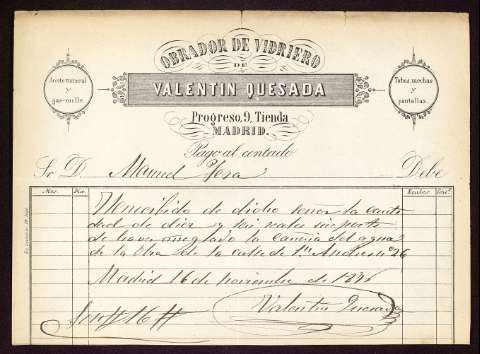 OBRADOR DE VIDRIERO
DE
VALENTIN QUESADA
Progreso, 9, Tienda
MADRID.
Aceite mineral
y
gas-mille.
Tubos, mechas
y
pantallas.
Pago al contado
Sr. D. Manuel Debe
Mes. Dia. Reales Cent.
He recibido de dicho señor la canti
dad de diez y seis reales importe
de haver arreglado la cañeria del agua
de la Obra de la calle de Sn Andres nº 26
Madrid 16 de noviembre de 1876
Son 16
Valentin Quesada